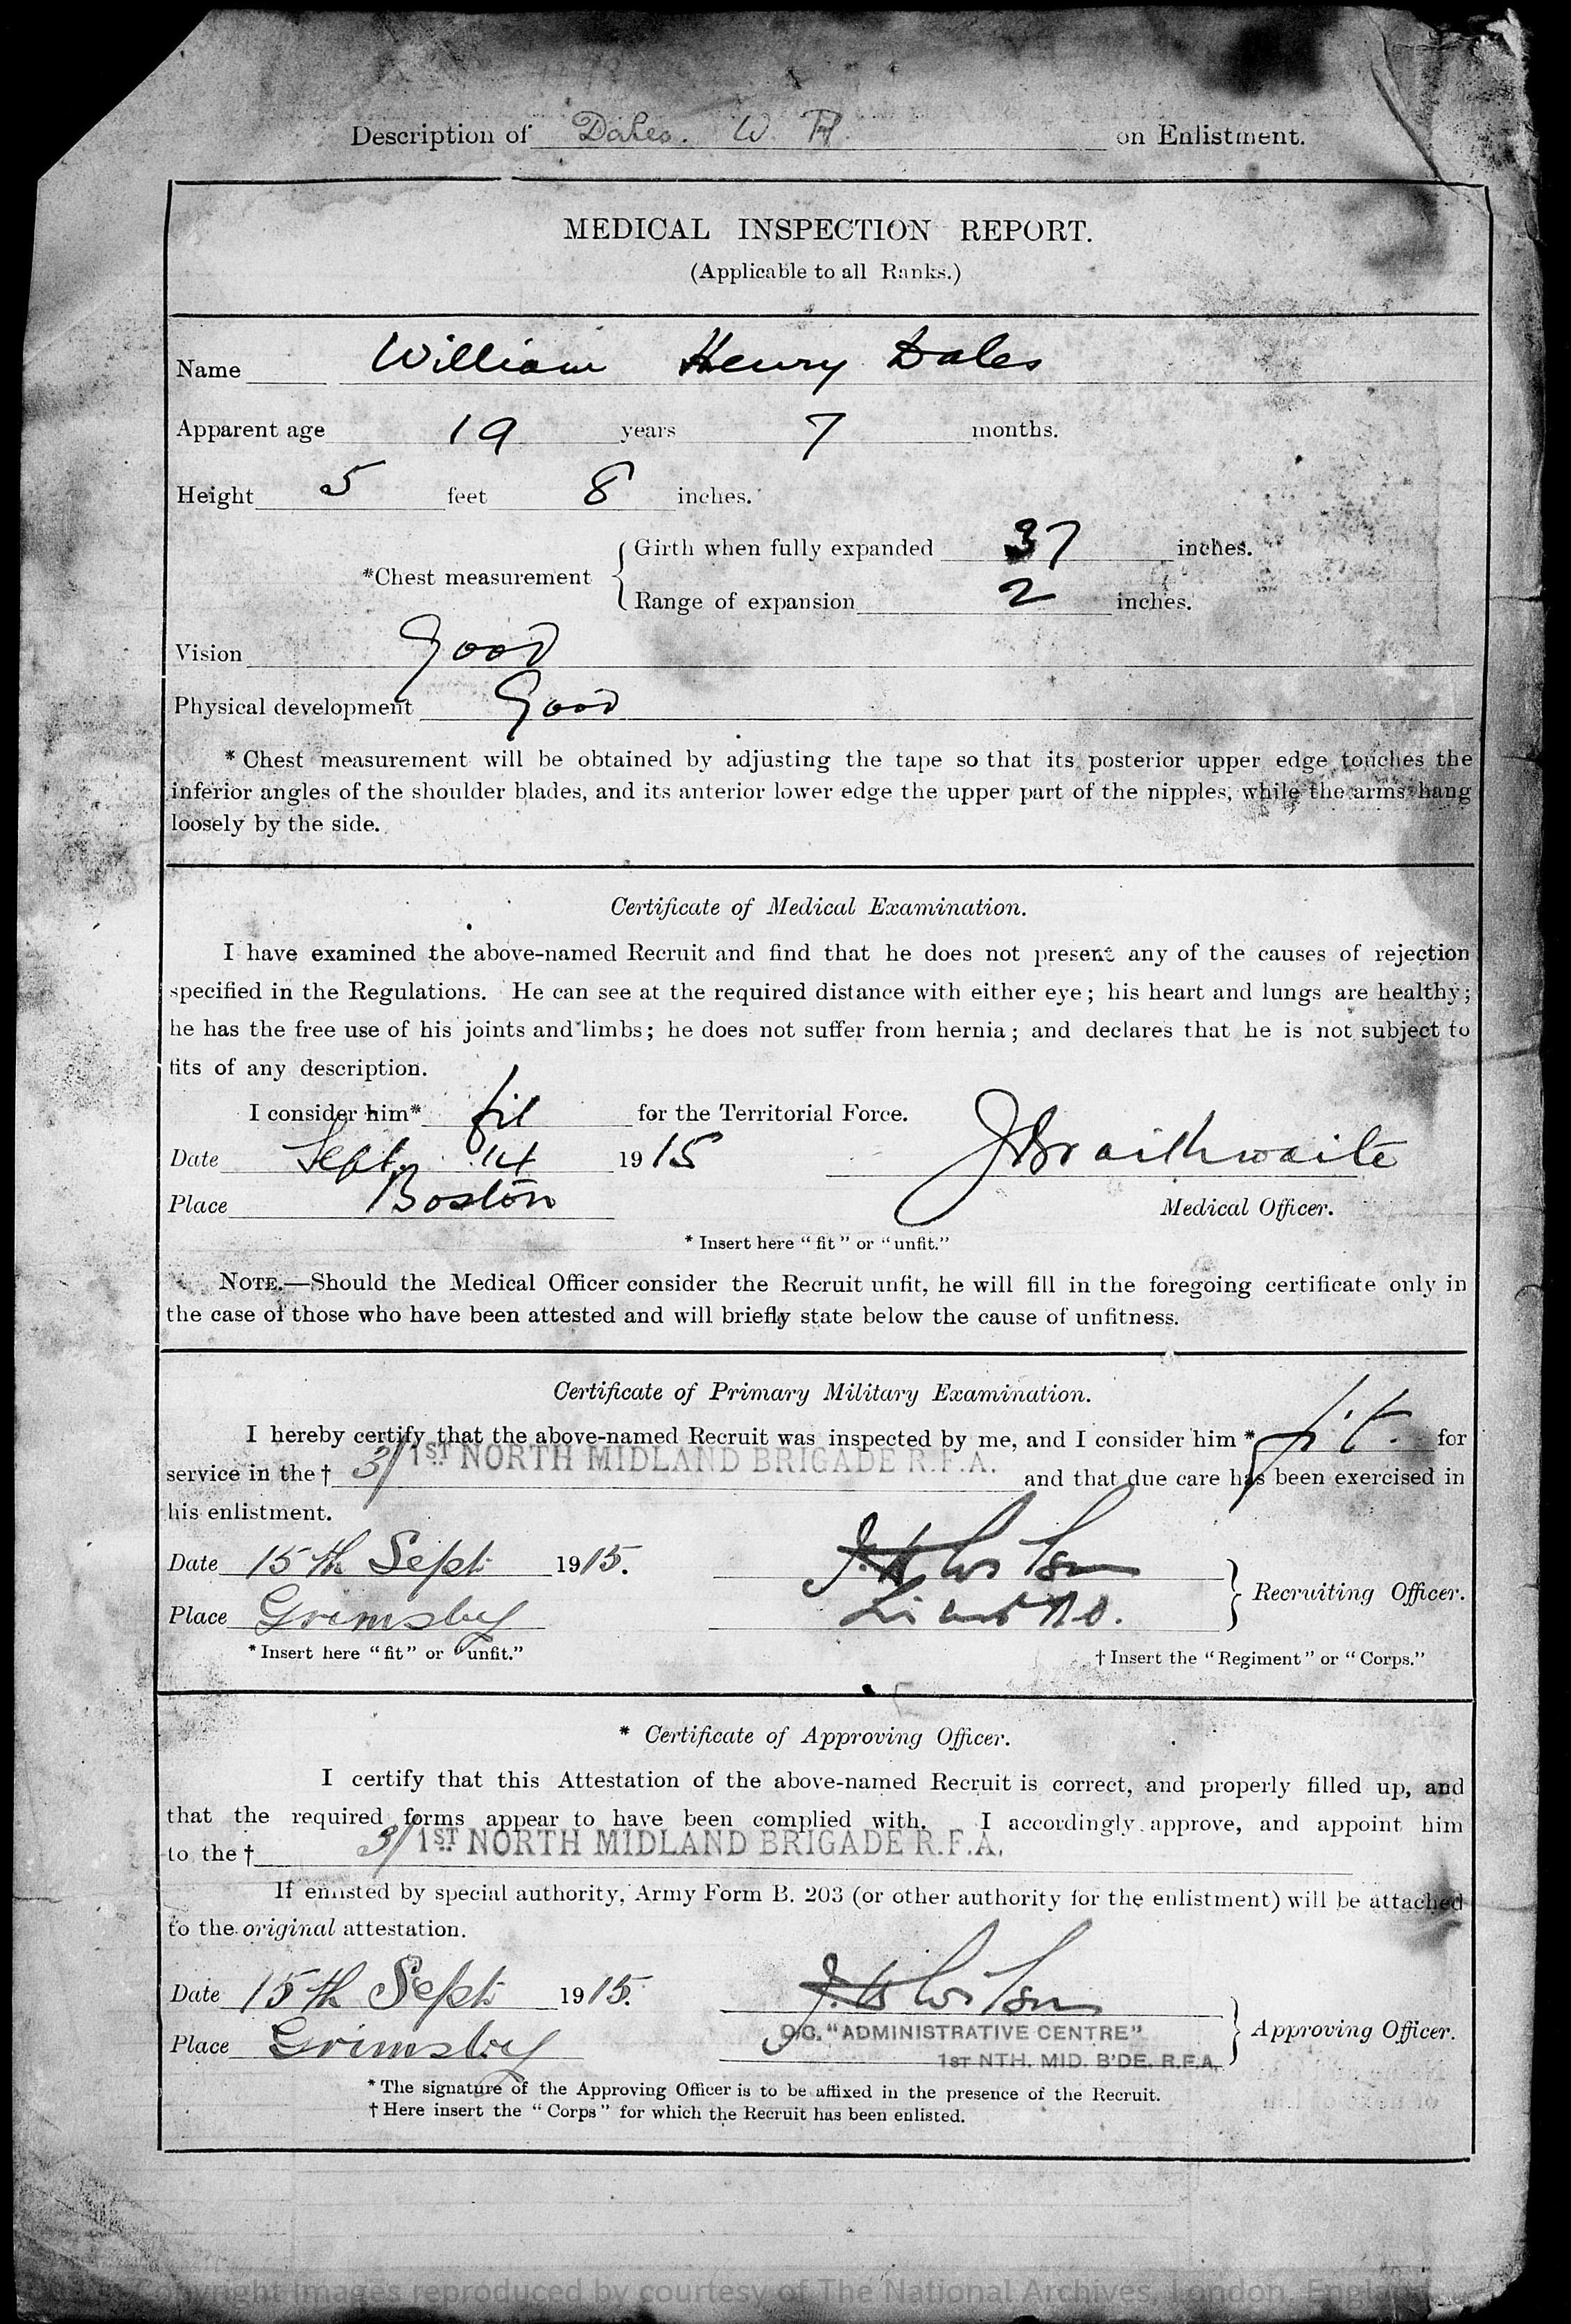 Description of Dales. W. H. on Enlistment.
MEDICAL INSPECTION REPORT.
(Applicable to all Ranks.)
Name William Henry Dales
Apparent age 19 years 7 months.
Height 5 feet 8 inches.
*Chest measurement
Girth when fully expanded 37 inches.
Range of expansion 2 inches.
Vision Good
Physical development Good
* Chest measurement will be obtained by adjusting the tape so that its posterior upper edge touches the
inferior angles of the shoulder blades, and its anterior lower edge the upper part of the nipples, while the arms hang
loosely by the side.
Certificate of Medical Examination.
I have examined the above-named Recruit and find that he does not present any of the causes of rejection
specified in the Regulations. He can see at the required distance with either eye; his heart and lungs are healthy;
he has the free use of his joints and limbs; he does not suffer from hernia; and declares that he is not subject to
fits of any description.
I consider him* fit for the Territorial Force.
Date Sept. 14 1915 J Braithwaite
Place Boston Medical Officer.
* Insert here "fit" or "unfit."
NOTE.—Should the Medical Officer consider the Recruit unfit, he will fill in the foregoing certificate only in
the case of those who have been attested and will briefly state below the cause of unfitness.
Certificate of Primary Military Examination.
I hereby certify that the above-named Recruit was inspected by me, and I consider him * fit. for
service in the † 3/1ST NORTH MIDLAND BRIGADE R.F.A. and that due care has been exercised in
his enlistment.
Date 15th Sept 1915.
Place Grimsby
Recruiting Officer.
* Insert here "fit" or "unfit." † Insert the "Regiment" or "Corps."
* Certificate of Approving Officer.
I certify that this Attestation of the above-named Recruit is correct, and properly filled up, and
that the required forms appear to have been complied with. I accordingly approve, and appoint him
to the † 3/1ST NORTH MIDLAND BRIGADE R.F.A.
If enlisted by special authority, Army Form B. 203 (or other authority for the enlistment) will be attached
to the original attestation.
Date 15th Sept 1915.
O.C. "ADMINISTRATIVE CENTRE" Approving Officer.
Place Grimsby 1ST NTH. MID. B'DE. R.F.A.
* The signature of the Approving Officer is to be affixed in the presence of the Recruit.
† Here insert the "Corps" for which the Recruit has been enlisted.
Copyright Images reproduced by courtesy of The National Archives, London, England.